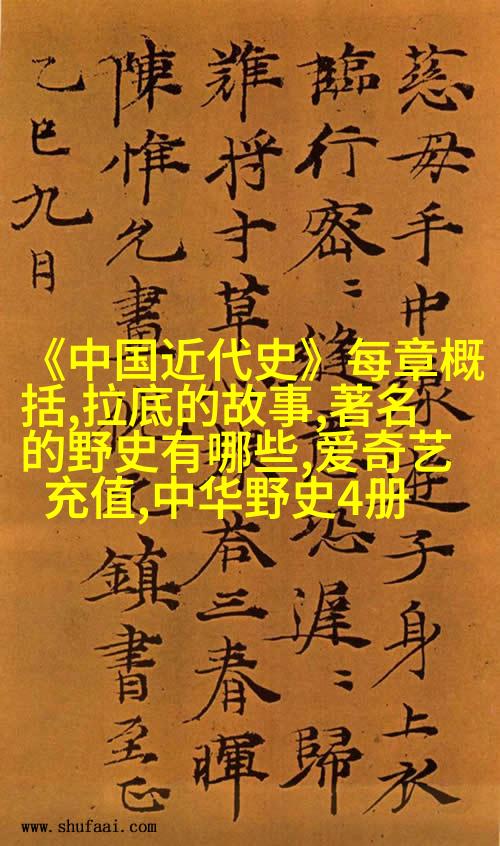 慈母手中線遊子身上衣
臨行密〻縫意恐遲〻歸
難将寸草荅三春暉
陳惟允書鎮書至正
乙巳九月
《中国近代史》每章概
括,拉底的故事,著名
的野史有哪些,爱奇艺
充值,中华野史4册
www.shufaai.com